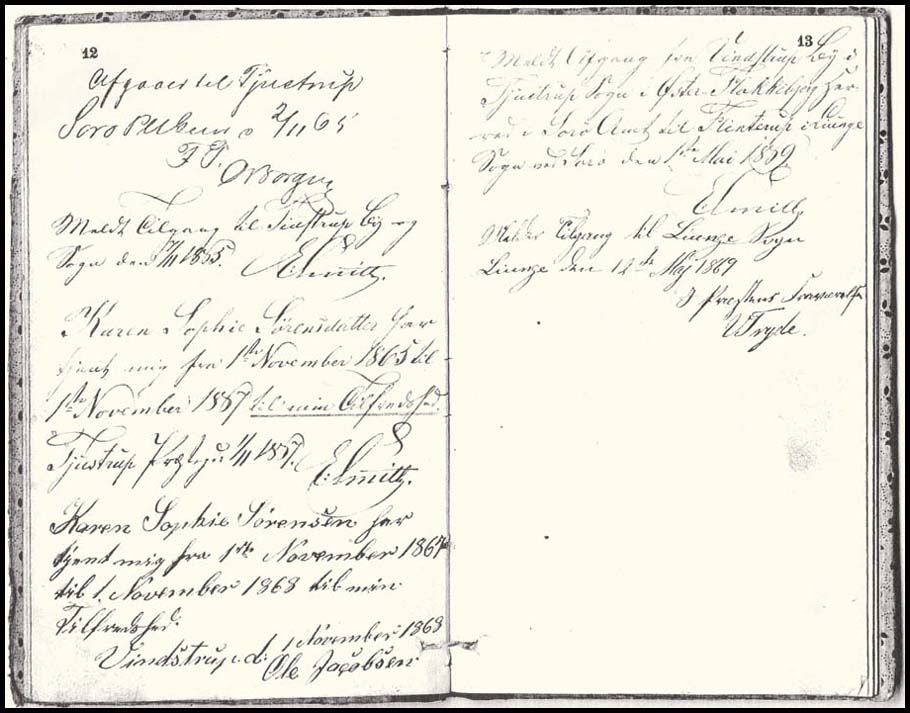 12
Afgaaer til Tjustrup
Sorø 2/11 65
Meldt Tilgang til Tjustrup By og
Sogn den 7/11 1865. E: Smitt.
Karen Sophie Sørensdatter har
tjent mig fra 1ste November 1865 til
1ste November 1867 til min Tilfredshed.
Tjustrup 1/11 1867. E: Smitt.
Karen Sophie Sørensen har
tjent mig fra 1ste November 1867
til 1. November 1868 til min
Tilfredshed.
Vindstrup d: 1 November 1868
Ole Jacobsen
13
Meldt Afgang fra Vindstrup By i
Tjustrup Sogn i Øster-Flakkebjerg Her-
red i Sorø Amt til Flinterup i Liunge
Sogn ved Sorø den 1ste Mai 1869.
E Smitt.
Meldt Tilgang til Liunge Sogn
Liunge den 12te Maj 1869
I Præstens Fraværelse
Tryde.